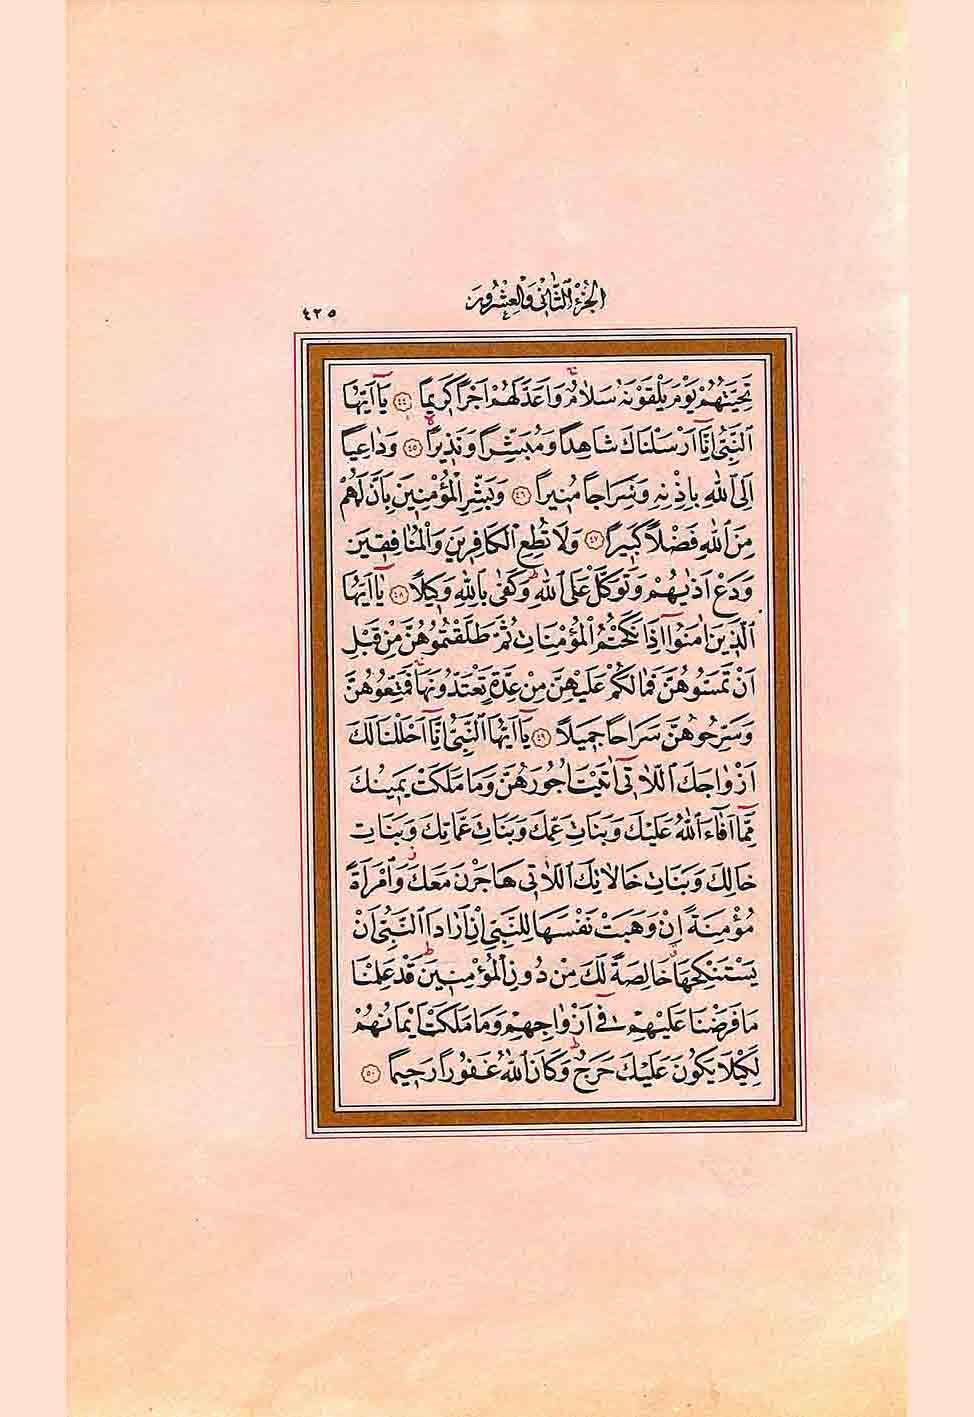 الجزء الثاني والعشرون
٤٢٥
تَحِيَّتُهُمْ يَوْمَ يَلْقَوْنَهُ سَلَامٌ وَاَعَدَّ لَهُمْ اَجْرًا كَرِيمًا ﴿٤٤﴾ يَٓا اَيُّهَا
النَّبِيُّ اِنَّٓا اَرْسَلْنَاكَ شَاهِدًا وَمُبَشِّرًا وَنَذِيرًا ﴿٤٥﴾ وَدَاعِيًا
اِلَى اللّٰهِ بِاِذْنِهِ وَسِرَاجًا مُنِيرًا ﴿٤٦﴾ وَبَشِّرِ الْمُؤْمِنِينَ بِاَنَّ لَهُمْ
مِنَ اللّٰهِ فَضْلًا كَبِيرًا ﴿٤٧﴾ وَلَا تُطِعِ الْكَافِرِينَ وَالْمُنَافِقِينَ
وَدَعْ اَذٰيهُمْ وَتَوَكَّلْ عَلَى اللّٰهِ وَكَفٰى بِاللّٰهِ وَكِيلًا ﴿٤٨﴾ يَٓا اَيُّهَا
الَّذِينَ اٰمَنُٓوا اِذَا نَكَحْتُمُ الْمُؤْمِنَاتِ ثُمَّ طَلَّقْتُمُوهُنَّ مِنْ قَبْلِ
اَنْ تَمَسُّوهُنَّ فَمَا لَكُمْ عَلَيْهِنَّ مِنْ عِدَّةٍ تَعْتَدُّونَهَا فَمَتِّعُوهُنَّ
وَسَرِّحُوهُنَّ سَرَاحًا جَمِيلًا ﴿٤٩﴾ يَٓا اَيُّهَا النَّبِيُّ اِنَّٓا اَحْلَلْنَا لَكَ
اَزْوَاجَكَ اللَّاتِٓي اٰتَيْتَ اُجُورَهُنَّ وَمَا مَلَكَتْ يَمِينُكَ
مِمَّٓا اَفَٓاءَ اللّٰهُ عَلَيْكَ وَبَنَاتِ عَمِّكَ وَبَنَاتِ عَمَّاتِكَ وَبَنَاتِ
خَالِكَ وَبَنَاتِ خَالَاتِكَ اللَّاتِي هَاجَرْنَ مَعَكَ وَامْرَاَةً
مُؤْمِنَةً اِنْ وَهَبَتْ نَفْسَهَا لِلنَّبِيِّ اِنْ اَرَادَ النَّبِيُّ اَنْ
يَسْتَنْكِحَهَا خَالِصَةً لَكَ مِنْ دُونِ الْمُؤْمِنِينَ قَدْ عَلِمْنَا
مَا فَرَضْنَا عَلَيْهِمْ فِٓي اَزْوَاجِهِمْ وَمَا مَلَكَتْ اَيْمَانُهُمْ
لِكَيْلَا يَكُونَ عَلَيْكَ حَرَجٌ وَكَانَ اللّٰهُ غَفُورًا رَحِيمًا ﴿٥٠﴾